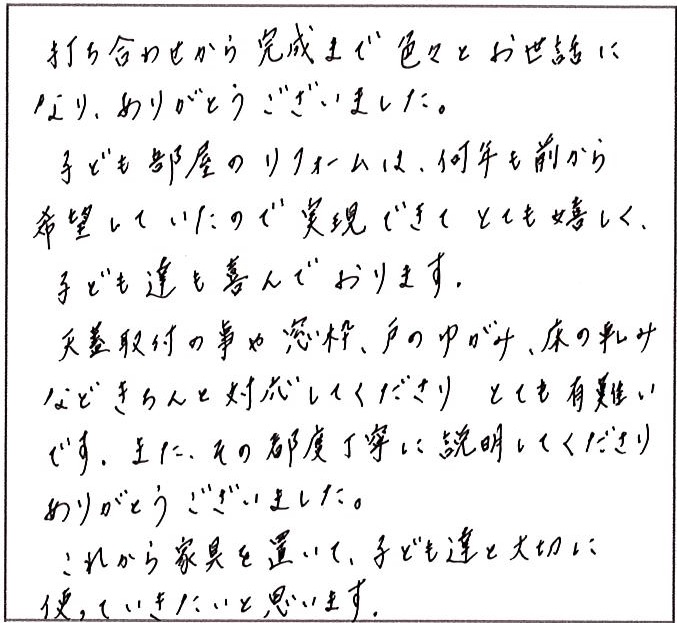 打ち合わせから完成まで色々とお世話に
なり、ありがとうございました。
子ども部屋のリフォームは、何年も前から
希望していたので実現できてとても嬉しく、
子ども達も喜んでおります。
天蓋取付の事や窓枠、戸のゆがみ、床の軋み
などきちんと対応してくださり とても有難い
です。また、その都度丁寧に説明してくださり
ありがとうございました。
これから家具を置いて、子ども達と大切に
使っていきたいと思います。